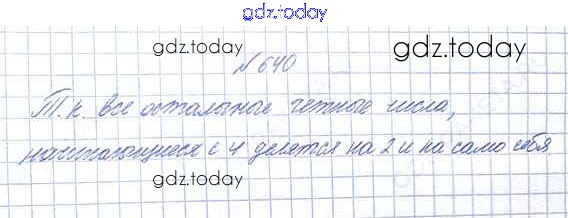 gdz.today
gdz.today
gdz.today
№640
Т.к. все остальные четные числа,
начинающиеся с 4 делятся на 2 и на само себя
gdz.today
gdz.today